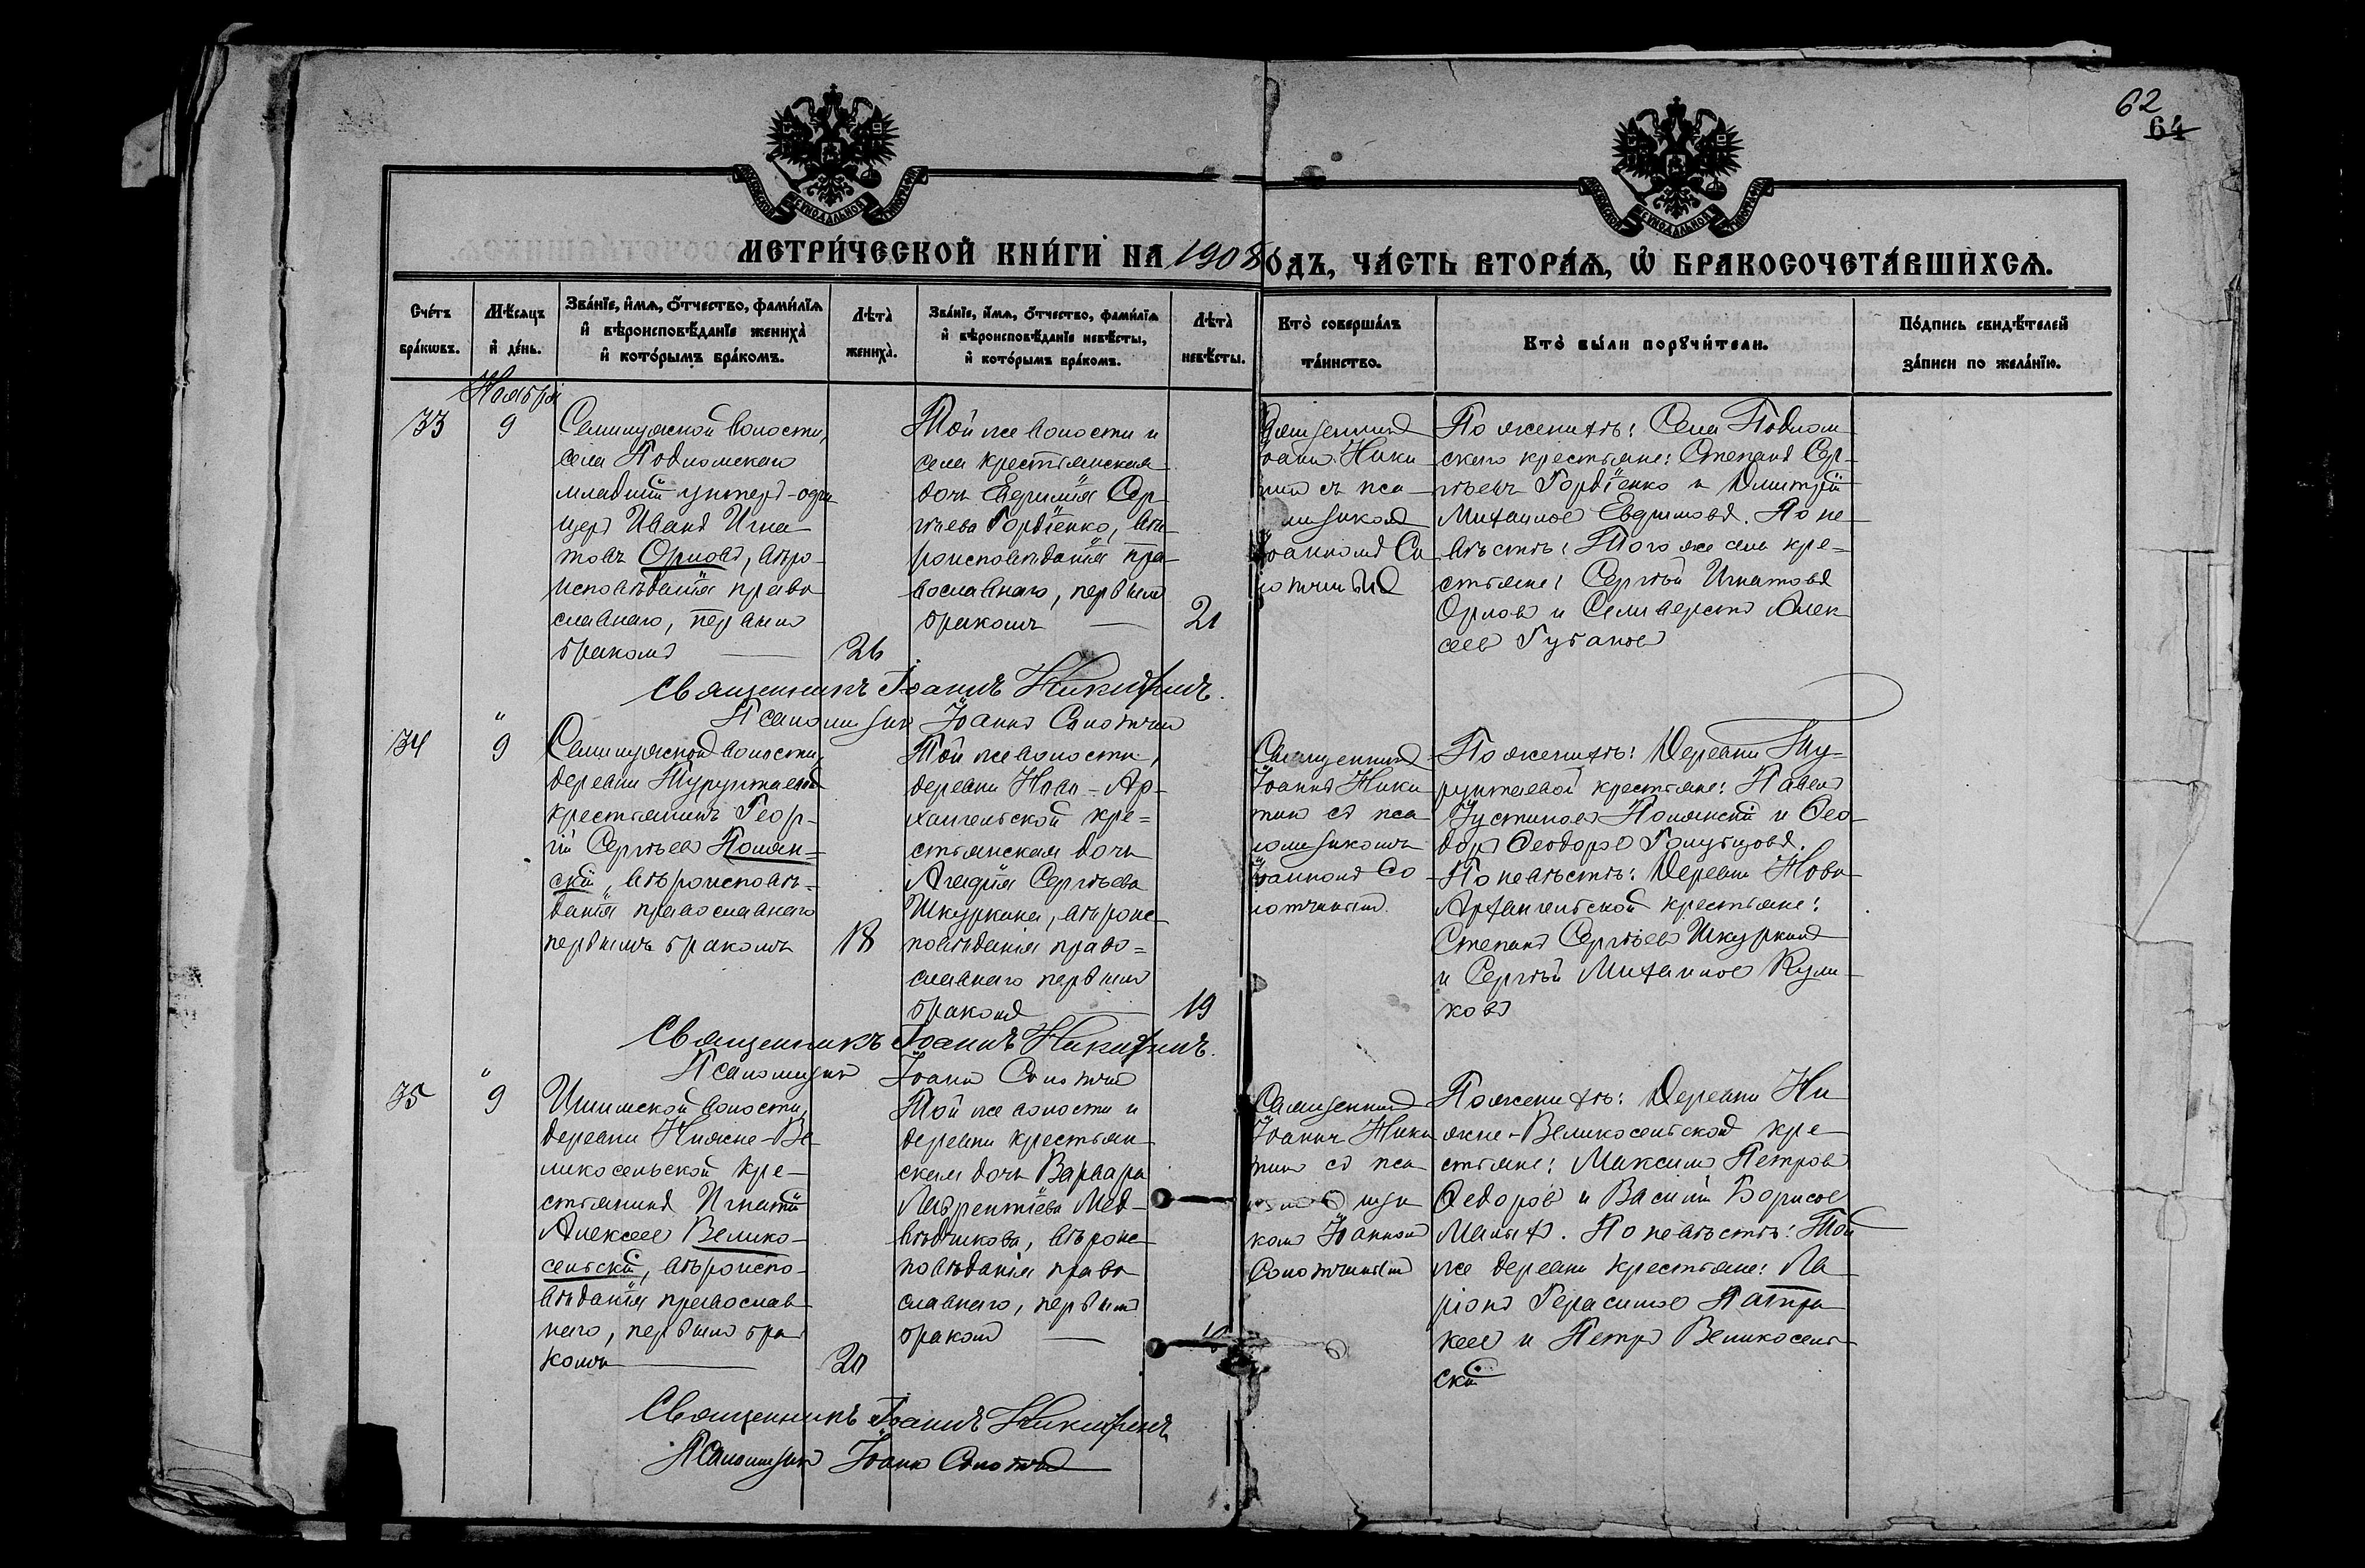 62
64
МЕТРИ́ЧЕСКОЙ КНИ́ГИ НА 1908
ОДЪ, ЧА́СТЬ ВТОРА́Ѧ, Ѡ҆ БРАКОСОЧЕТА́ВШИХСѦ.
Сче́тъ бра́кѡвъ.
Мѣ́сяцъ и҆ де́нь.
Зва́нїе, и҆́мѧ, ѻ҆́тчество, фами́лїѧ
и҆ вѣроисповѣ́данїе жениха̀
и҆ кото́рымъ бра́комъ.
Лѣта̀ жениха̀.
Зва́нїе, и҆́мѧ, ѻ҆́тчество, фами́лїѧ
и҆ вѣроисповѣ́данїе невѣ́сты,
и҆ кото́рымъ бра́комъ.
Лѣта̀ невѣ́сты.
Кто̀ соверша́лъ та́инство.
Кто̀ бы́ли порꙋчи́тели.
По́дпись свидѣ́телей
за́писи по жела́нїю.
Ноября
33
9
Семилужской волости,
села Подломскаго
младшій унтеръ-офи
церъ Иванъ Игна
товъ Орловъ, вѣро-
исповѣданія право
славнаго, первымъ
бракомъ
26
Той же волости и
села крестьянская
дочь Евфимія Сер-
гѣева Гордіенко, вѣ-
роисповѣданія пра-
вославнаго, первымъ
бракомъ
21
Священникъ
Іоаннъ Ники
тинъ съ пса
ломщикомъ
Іоанномъ Со
лотчинымъ
По женихѣ: Села Подлом
скаго крестьяне: Степанъ Сер-
гѣевъ Гордіенко и Димитрій
Михаиловъ Евфимовъ. По не-
вѣстѣ: Того же села кре=
стьяне: Сергѣй Игнатовъ
Орловъ и Селиверстъ Алек
сеевъ Губановъ
Священникъ Іоаннъ Никитинъ.
Псаломщикъ Іоаннъ Солотчинъ
34
"
9
Семилужской волости,
деревни Турунтаевой
крестьянинъ Геор-
гій Сергѣевъ Полян=
скій, вѣроисповѣ-
данія православнаго
первымъ бракомъ
18
Той же волости,
деревни Ново-Ар-
хангельской кре=
стьянская дочь
Агафія Сергѣева
Шкуркина, вѣроис
повѣданія право=
славнаго первымъ
бракомъ
19
Священникъ
Іоаннъ Ники
тинъ съ пса
ломщикомъ
Іоанномъ Со
лотчинымъ
По женихѣ: Деревни Ту-
рунтаевой крестьяне: Павелъ
Іустиновъ Полянскій и Ѳео-
доръ Ѳеодоровъ Голубцовъ.
По невѣстѣ: Деревни Ново
Архангельской крестьяне:
Степанъ Сергѣевъ Шкуркинъ
и Сергѣй Михаиловъ Кули-
ковъ
Священникъ Іоаннъ Никитинъ.
Псаломщикъ Іоаннъ Солотчинъ
35
"
9
Ишимской волости,
деревни Нижне-Ве
ликосельской кре-
стьянинъ Игнатій
Алексеевъ Велико-
сельскій, вѣроиспо-
вѣданія православ-
наго, первымъ бра
комъ
20
Той же волости и
деревни крестьян-
ская дочь Варвара
Лаврентіева Мед-
вѣдчикова, вѣроис
повѣданія право
славнаго, первымъ
бракомъ
Священникъ
Іоаннъ Ники
тинъ съ пса
ломщи
комъ Іоанномъ
Солотчинымъ
По женихѣ: Деревни Ни
жне-Великосельской кре-
стьяне: Максимъ Петровъ
Ѳедоровъ и Василій Борисовъ
Малыхъ. По невѣстѣ: Той
же деревни крестьяне: Ла-
ріонъ Герасимовъ Патра
кеевъ и Петръ Великосель-
скій
Священникъ Іоаннъ Никитинъ
Псаломщикъ Іоаннъ Солотчинъ